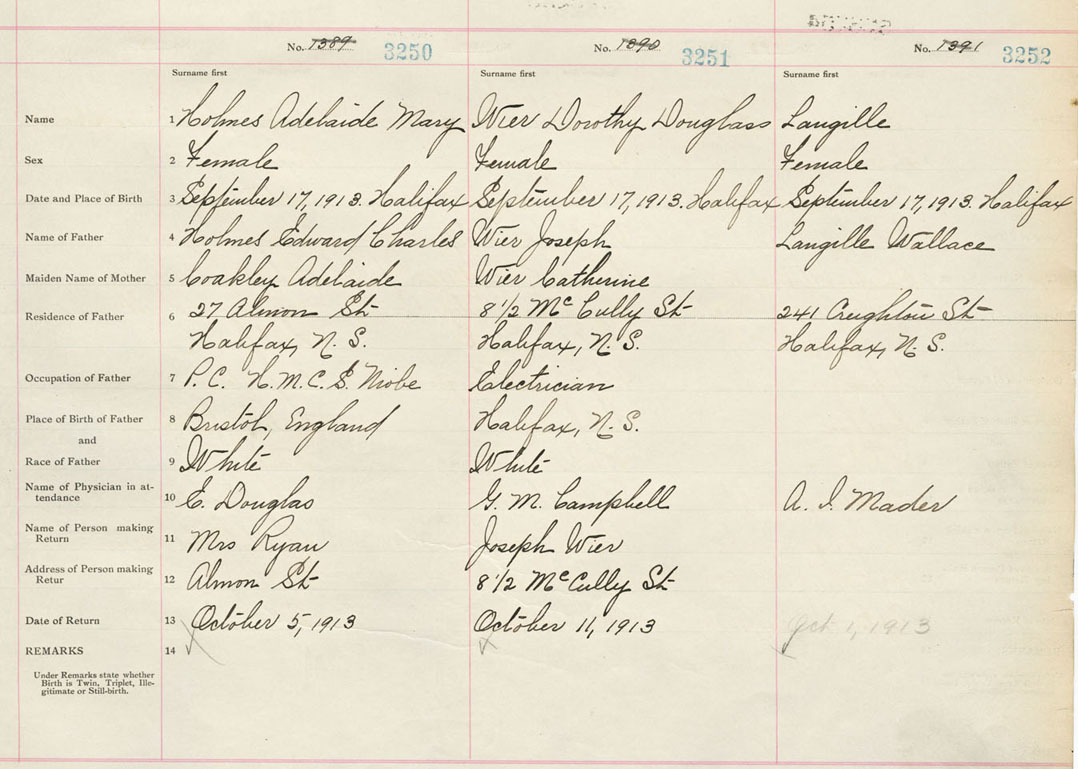 No. 1389 3250 No. 1390 3251 No. 1391 3252
Surname first Surname first Surname first
Name 1 Holmes Adelaide Mary Wier Dorothy Douglass Langille
Sex 2 Female Female Female
Date and Place of Birth 3 September 17, 1913. Halifax September 17, 1913. Halifax September 17, 1913. Halifax
Name of Father 4 Holmes Edward Charles Wier Joseph Langille Wallace
Maiden Name of Mother 5 Coakley Adelaide Wier Catherine
Residence of Father 6 27 Almon St 8 1/2 McCully St 241 Creighton St
Halifax, N.S. Halifax, N.S. Halifax, N.S.
Occupation of Father 7 P.C. H.M.C.S. Niobe Electrician
Place of Birth of Father 8 Bristol, England Halifax, N.S.
and
Race of Father 9 White White
Name of Physician in at-
tendance 10 E. Douglas G. M. Campbell A. I. Mader
Name of Person making
Return 11 Mrs Ryan Joseph Wier
Address of Person making
Retur 12 Almon St 8 1/2 McCully St
Date of Return 13 October 5, 1913 October 11, 1913 Oct 1, 1913
REMARKS 14
Under Remarks state whether
Birth is Twin, Triplet, Ille-
gitimate or Still-birth.